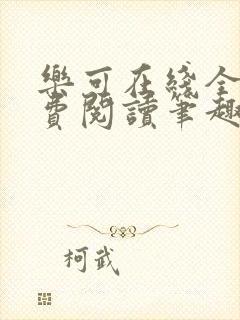 樂可在綫全
費閱讀筆趣
柯武